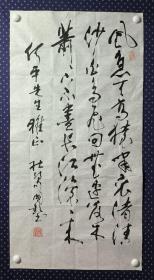 風急天高猿嘯哀渚清
沙白鳥飛回無邊落木
蕭蕭下不盡長江滾滾來
先生雅正